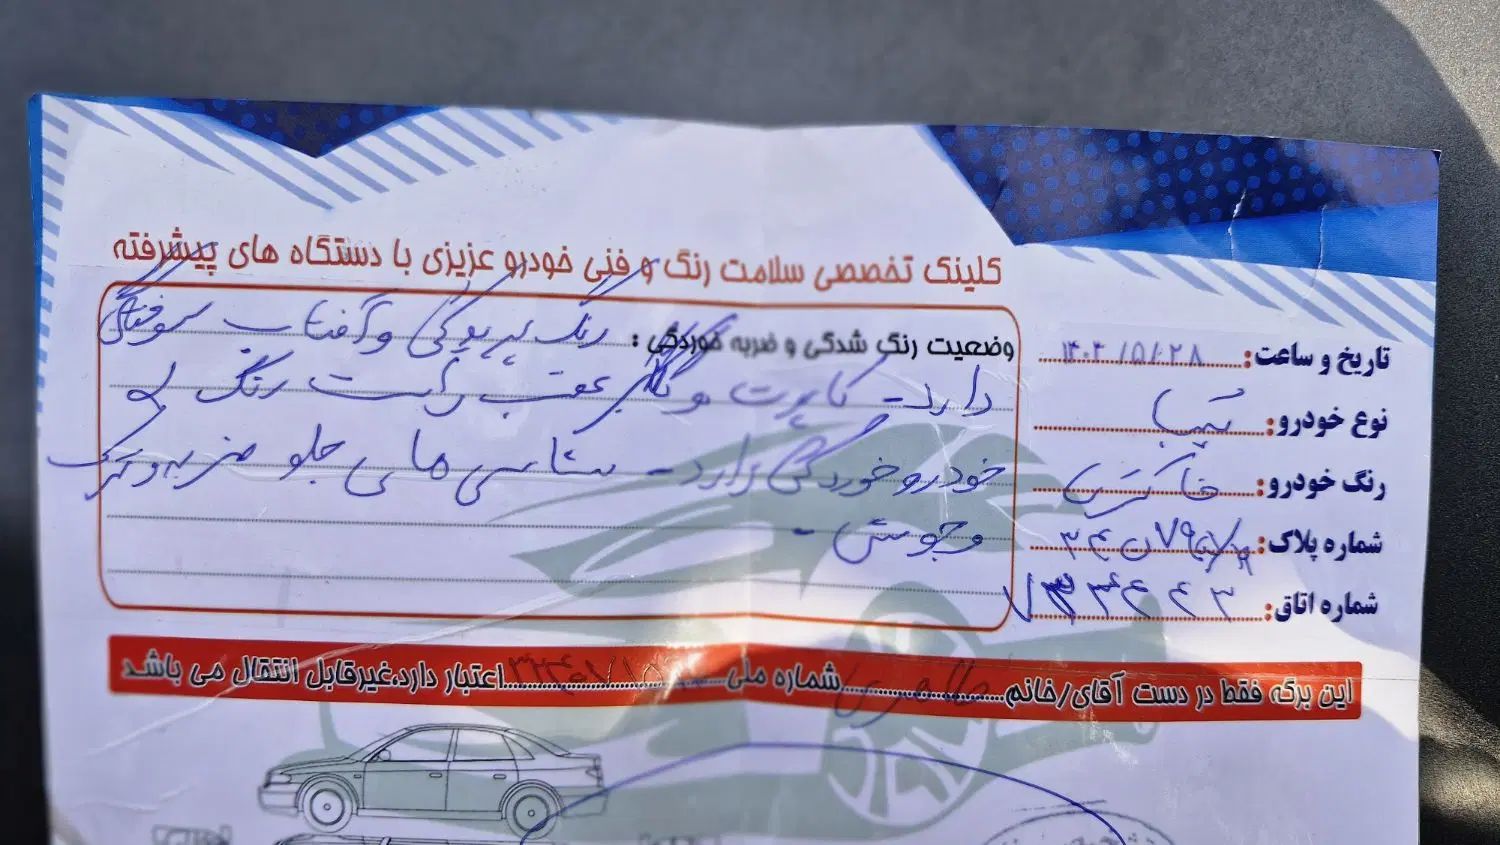 کلینک تخصصی سلامت رنگ و فنی خودرو عزیزی با دستگاه های پیشرفته
تاریخ و ساعت: ۱۴۰۳/۵/۲۸
نوع خودرو: تیبا
رنگ خودرو: خاکستری
شماره پلاک:
شماره اتاق:
وضعیت رنگ شدگی و ضربه خوردگی: رنگ پریدگی و آفتاب سوختگی
دارد - کاپوت و گلگیر عقب راست رنگ
خودرو خوردگی دارد - شاسی های جلو ضربه و ترک
و جوش -
این برگه فقط در دست آقای/خانم طاهری شماره ملی اعتبار دارد.غیرقابل انتقال می باشد